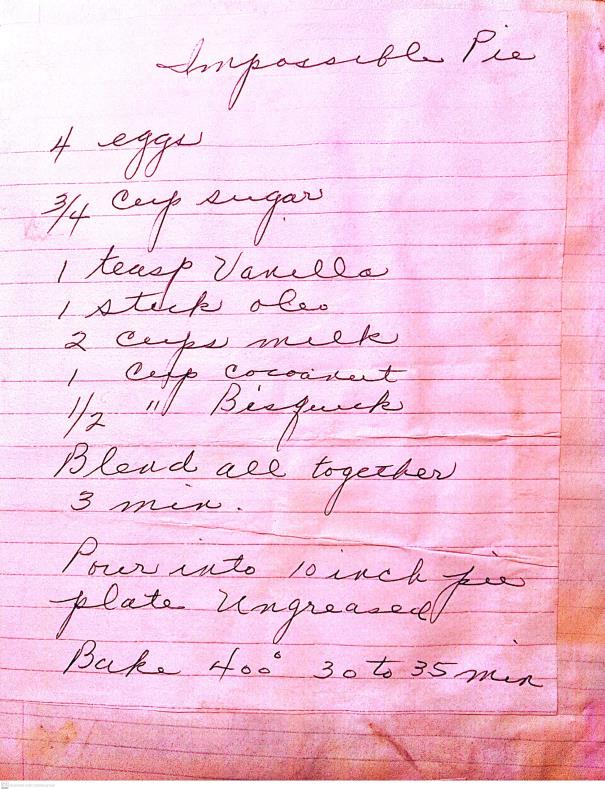 Impossible Pie
4 eggs
3/4 cup sugar
1 teasp Vanilla
1 stick oleo
2 cups milk
1 cup cocoanut
1/2 " Bisquick
Blend all together
3 min.
Pour into 10 inch pie
plate Ungreased
Bake 400° 30 to 35 min